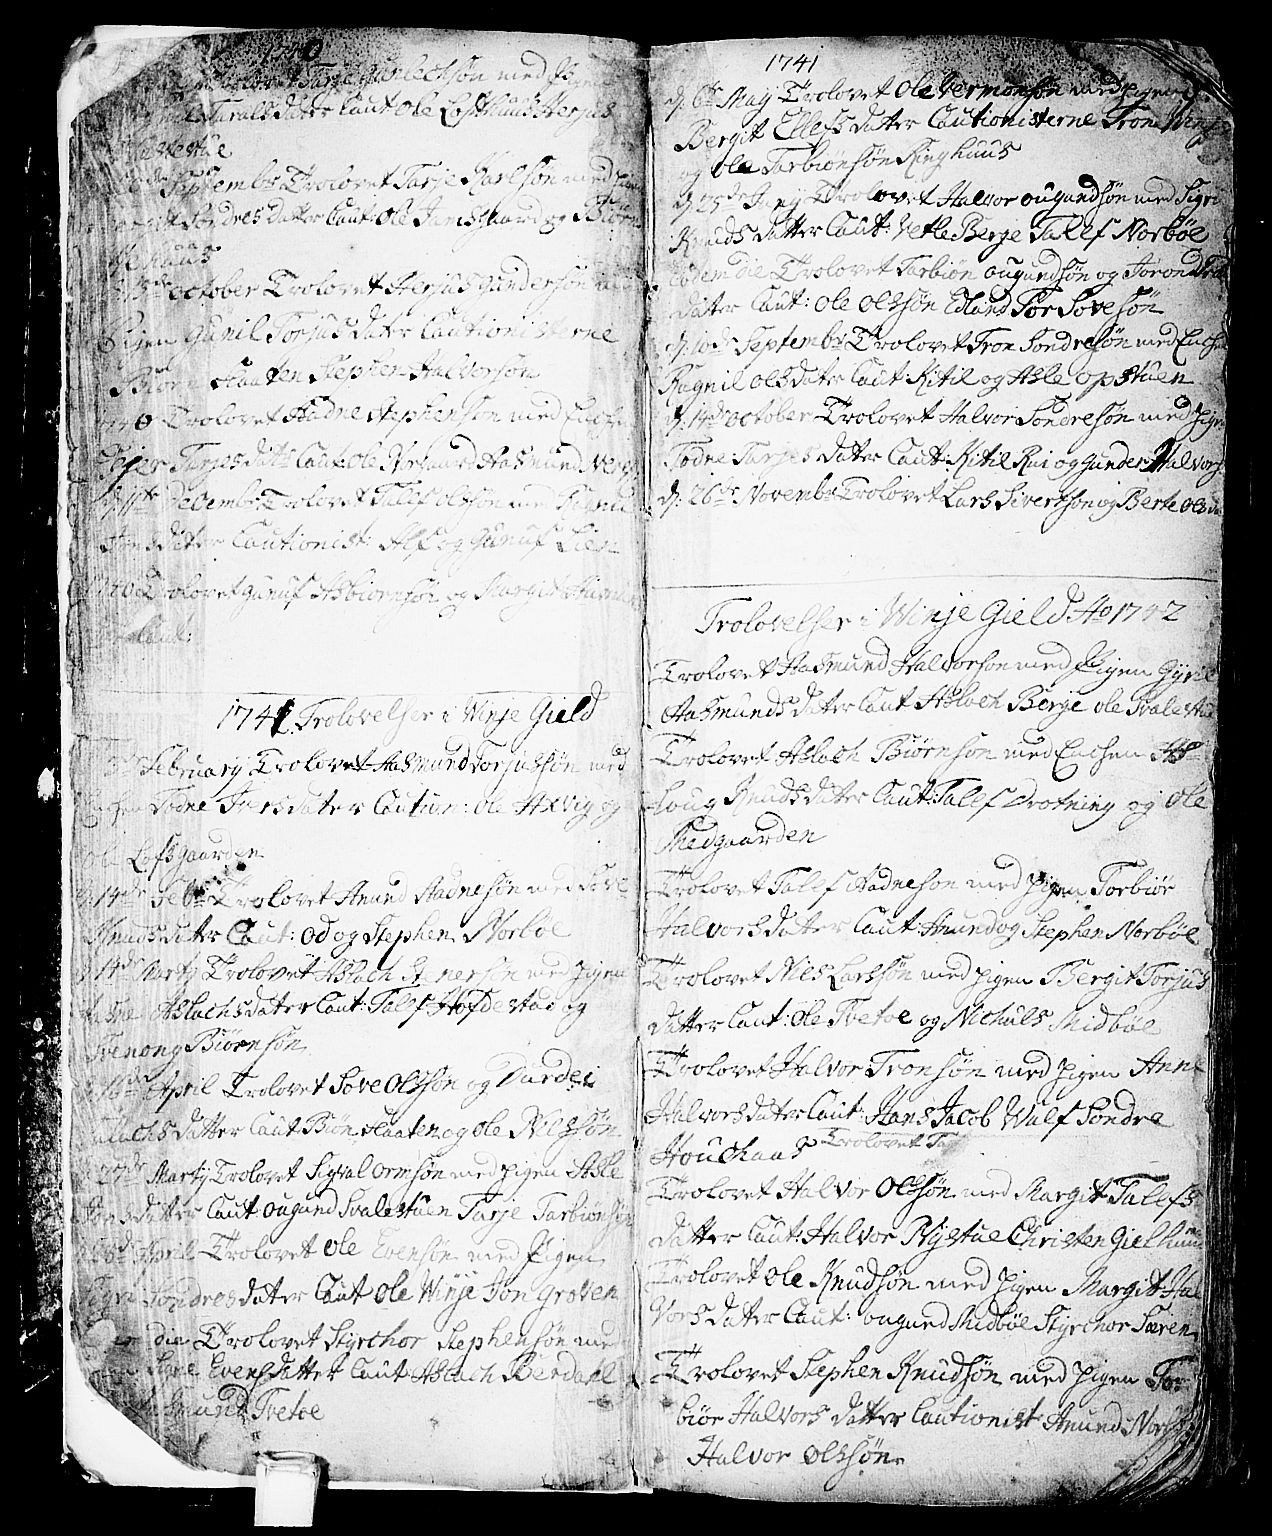 1740
Tarje Gunlechsøn med
Taralsdater Caut Ole Lofthuus Herjus
Septembr Trolovet Tarje Karlsøn med
Sondresdatter Caut: Ole Jamsgaard og Biørn
october Trolovet Herjus Gundersøn
Pigen Gunil Torjusdater Cautionisterne
Biørn Haaten Stephen Halvorsøn
1740 Trolovet Hadne Stephensøn med
Tarjesdatr Caut: Ole Aasmund
d. 11te Decembr: Trolovet Talef Olsøn med
datter Cautionist: Alf og Gunuf Lien
1740 Trolovet Gunuf Asbiørnsøn og Margit
Caut:
1741 Trolovelser i Winje Gield
February Trolovet Aasmund Torjussøn med
Todne datter Caution: Ole Axvig og
Ole Lofsgaarden
d. 14de Febr: Trolovet Anund Aadnesøn med Tove
Knudsdater Caut: Od og Stephen Norbøe
d. 14de Marty Trolovet Aslach Stenersøn med pigen
Aslachsdater Caut: Talef Hofdestad og
Svenong Biørnsøn
d. 16de April Trolovet Sove Olssøn og Durdei
datter Caut Biøn Haaten og Ole Nilssøn
d. 27de Marty Trolovet Sigval Ormsøn med pigen Asle
datter Caut Ougund Svalestuen Tarje Tarbiønsøn
April Trolovet Ole Evensøn med Pigen
Sondresdater Caut Ole Winje Jon Groven
die Trolovet Styrchor Stephensøn med
Evensdatter Caut Aslach Berdahl
Tvetoe
1741
d. 6te May Trolovet Ole Germonsøn med pigen
Bergit Ellefsdater Cautionisterne Tron Winje
og Ole Tarbiønsøn Ringhuus
d. 25de Juny Trolovet Halvor Ougundsøn med Sigri
Knudsdatter Caut: Vetle Berge Talef Norbøe
Eodem die Trolovet Tarbiøn Ougundsøn og Joron
dater Caut: Ole Olssøn Edland Tor Sovesøn
d. 10de Septembr Trolovet Tron Sondresøn med Enchen
Ragnil Olsdater Caut Kitil og Asle Opstuen
d. 14de october Trolovet Halvor Sondresøn med pigen
Todne Tarjesdater Caut: Kitil Rui og Gunder Halvors
d. 26de Novembr Trolovet Lars Sivertsøn og Berte Olsda
Trolovelser i Winje Gield Ao 1742
Trolovet Aasmund Halvorsøn med Pigen Gyril
Aasmundsdater Caut Aslach Berge Ole Svalestue
Trolovet Aslach Biørnsøn med Enchen As=
loug Knudsdater Caut: Talef Drotning og Ole
Medgaarden
Trolovet Talef Hadnesøn med pigen Torbiør
Halvorsdater Caut: Anund og Stephen Norbøe
Trolovet Niels Larssøn med pigen Bergit Torjus
datter Caut: Ole Tvetoe og Nichuls Midbøe
Trolovet Halvor Tronsøn med pigen Anne
Halvorsdater Caut: Hans Jacob Wulf Sondre
Houchaas Trolovet Ta
Trolovet Halvor Olssøn med Margit Talefs
datter Caut: Halvor Nystue Christen Gielhuus
Trolovet Ole Knudsøn med pigen Margit Hal
vorsdater Caut: Ougund Midbøe Styrchor Særen
Trolovet Stephen Knudsøn med pigen Tor
biør Halvorsdatter Cautionist Anund Norbø
Halvor Olssøn